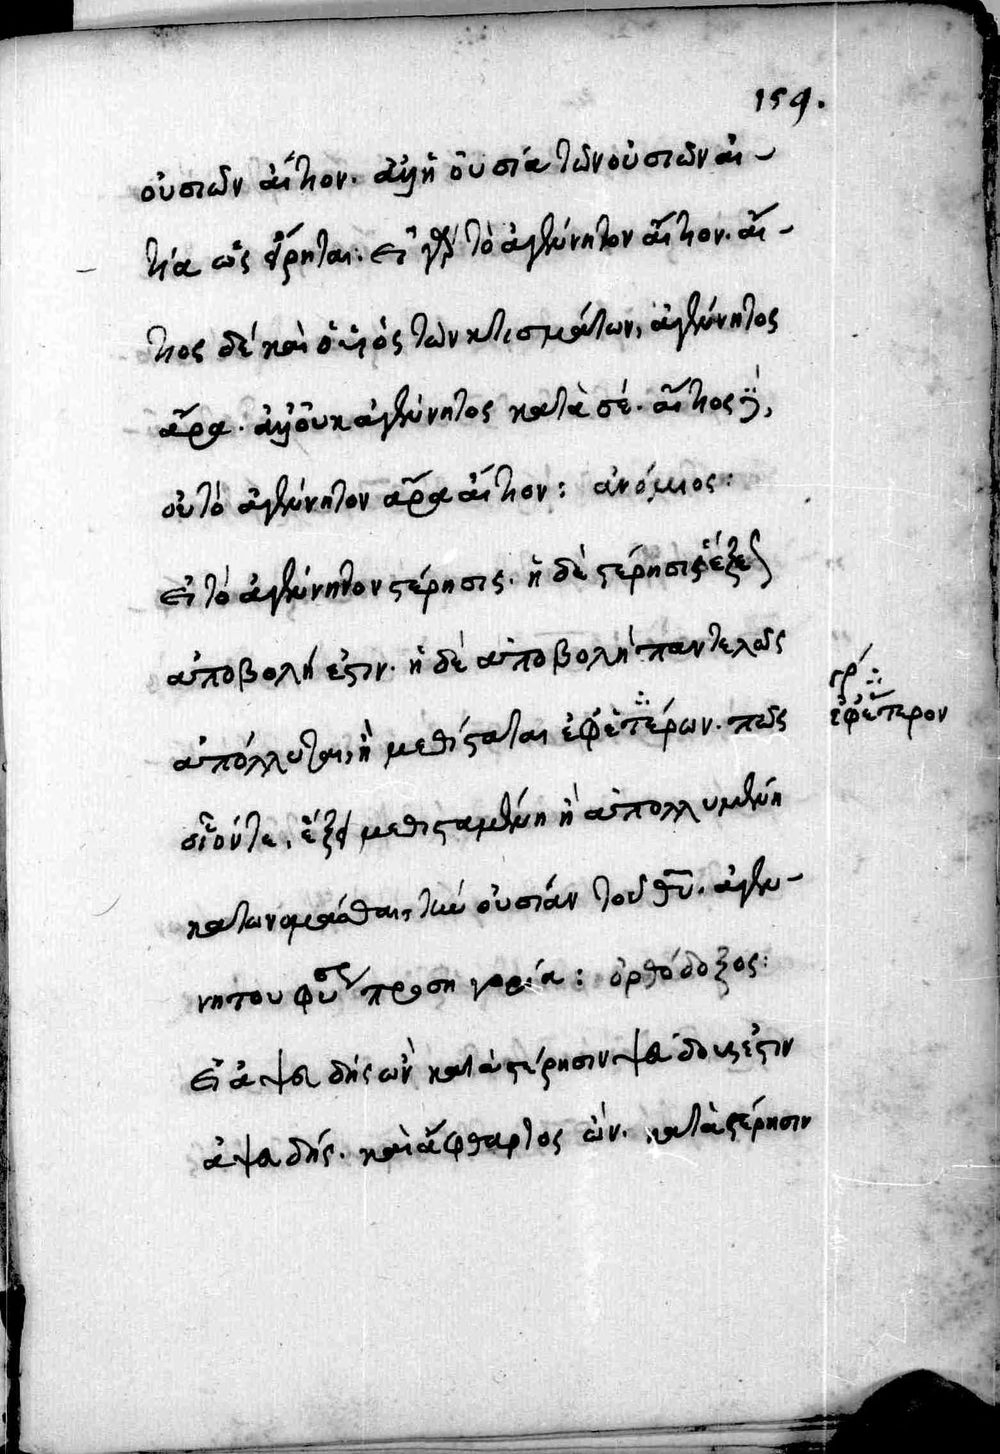 159.
οὐσιῶν αἴτιον. ἀλλ' ἡ οὐσία τῶν οὐσιῶν αἰ-
τία ὡς εἴρηται. εἰ γὰρ τὸ ἀγέννητον αἴτιον. αἴ-
τιος δὲ καὶ ὁ υἱὸς τῶν κτισμάτων, ἀγέννητος
ἄρα. ἀλλ' οὐκ ἀγέννητος κατὰ σέ. αἴτιος
οὐ τὸ ἀγέννητον ἄρα αἴτιον: ἀνόμιος:
εἰ τὸ ἀγέννητον στέρησις. ἡ δὲ στέρησις ἕξεως
ἀποβολή ἐστιν. ἡ δὲ ἀποβολὴ παντελῶς
ἀπόλλυται, ἢ μεθίσταται ἐφ' ἑτέρων. πῶς
γρ
ἐφ' ἕτερον
οἷόν τε, ἕξει μεθισταμένη ἢ ἀπολλυμένη
κατωνομάσθαι, τὴν οὐσίαν τοῦ θυ. ἀγεν-
νήτου προσηγορία: ὀρθόδοξος:
εἰ ἀψευδὴς ὢν κατὰ στέρησιν ψεύδους ἐστιν
ἀψευδής. καὶ ἄφθαρτος ὢν. κατὰ στέρησιν